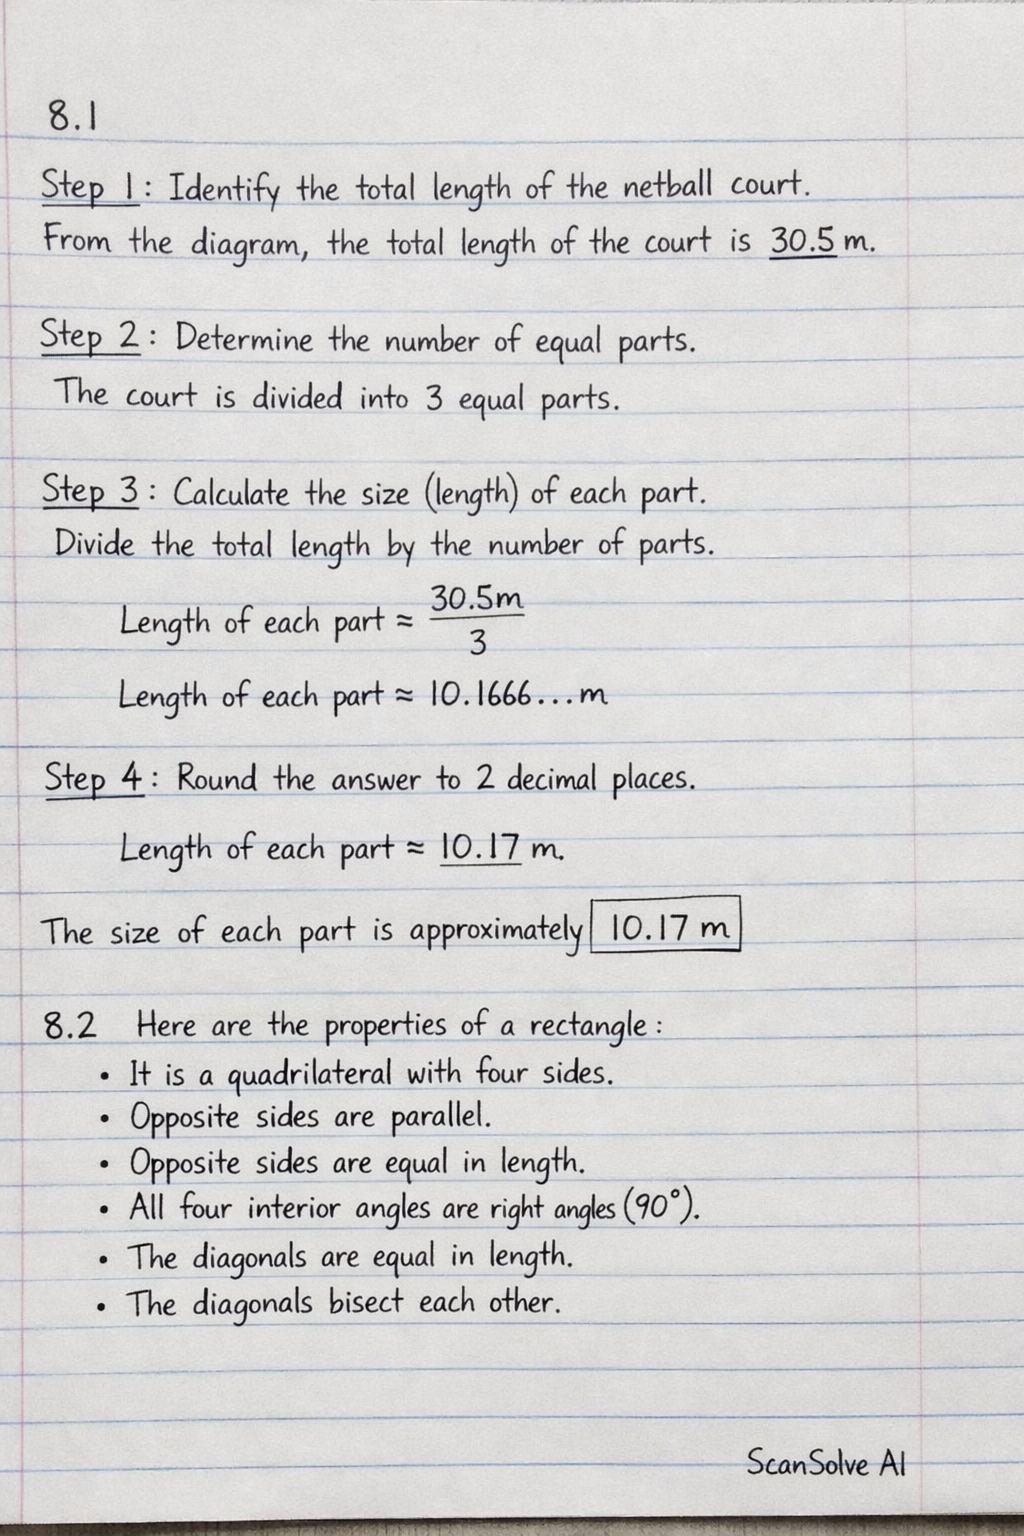 8.1
Step 1: Identify the total length of the netball court.
From the diagram, the total length of the court is 30.5 m.
Step 2: Determine the number of equal parts.
The court is divided into 3 equal parts.
Step 3: Calculate the size (length) of each part.
Divide the total length by the number of parts.
Length of each part ≈ 30.5m / 3
Length of each part ≈ 10.1666...m
Step 4: Round the answer to 2 decimal places.
Length of each part ≈ 10.17 m.
The size of each part is approximately 10.17 m
8.2 Here are the properties of a rectangle:
• It is a quadrilateral with four sides.
• Opposite sides are parallel.
• Opposite sides are equal in length.
• All four interior angles are right angles (90°).
• The diagonals are equal in length.
• The diagonals bisect each other.
ScanSolve AI